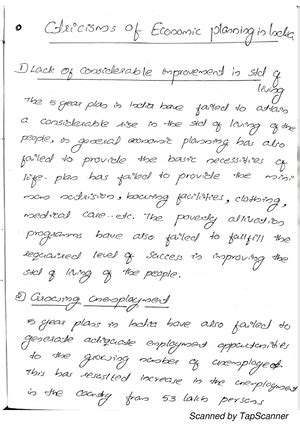 Criticisms of Economic planning in India
1) Lack of considerable improvement in std of
living
The 5 year plan in India have failed to attain
a considerable rise in the std of living of the
people, in general economic planning has also
failed to provide the basic necessities of
life. plan has failed to provide the mini-
mum nutrision, housing facilities, clothing,
medical care.. etc. The poverty alliviation
programs have also failed to fullfill the
required level of success in improving the
std of living of the people.
2) Growing unemployment
5 year plans in India have also failed to
generate adiquate employment opportunities
to the growing number of unemployed.
This has resulted increase in the unemployment
in the country from 53 lakh persons
Scanned by TapScanner